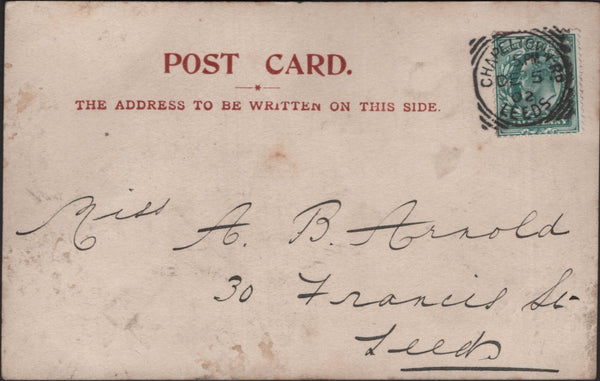 POST CARD.
THE ADDRESS TO BE WRITTEN ON THIS SIDE.
LEEDS
Miss A. B. Arnold
30 Francis St
Leeds